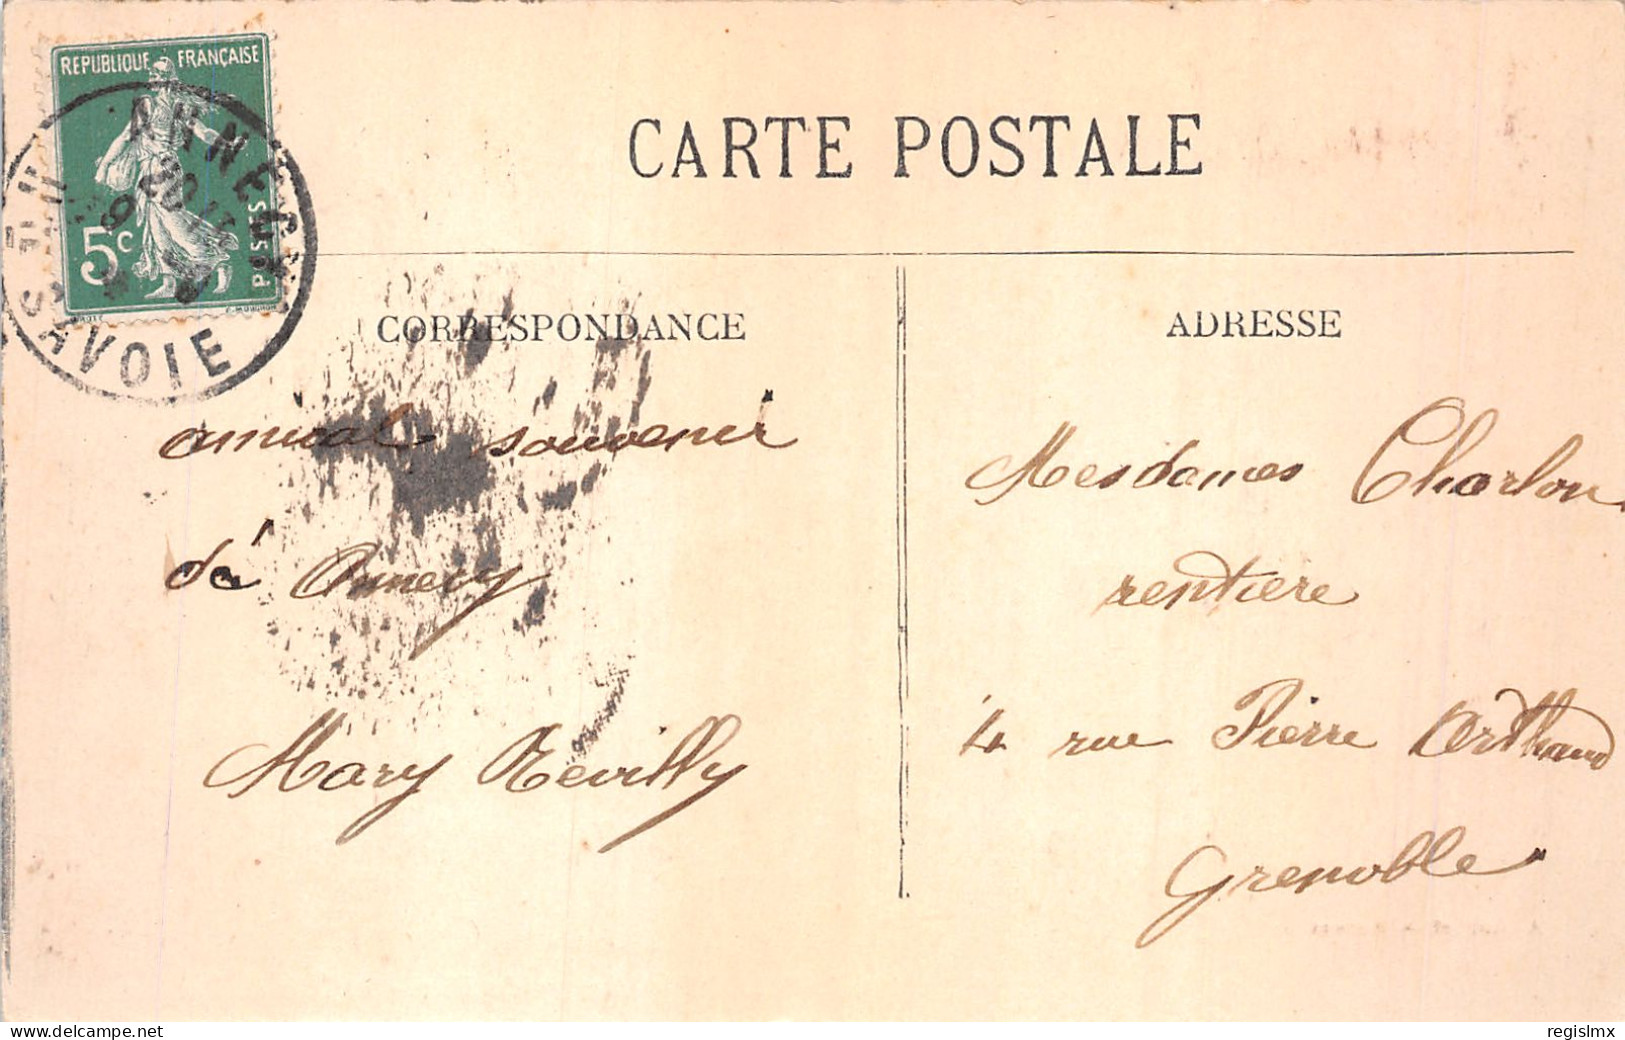 REPUBLIQUE FRANÇAISE
5c
POSTES
ANNECY
20
Hte SAVOIE
CARTE POSTALE
CORRESPONDANCE
ADRESSE
amical souvenir
dé Annecy
Mary Revilly
Mesdames Charlon
rentiere
4 rue Pierre Arthaud
Grenoble
regislmx